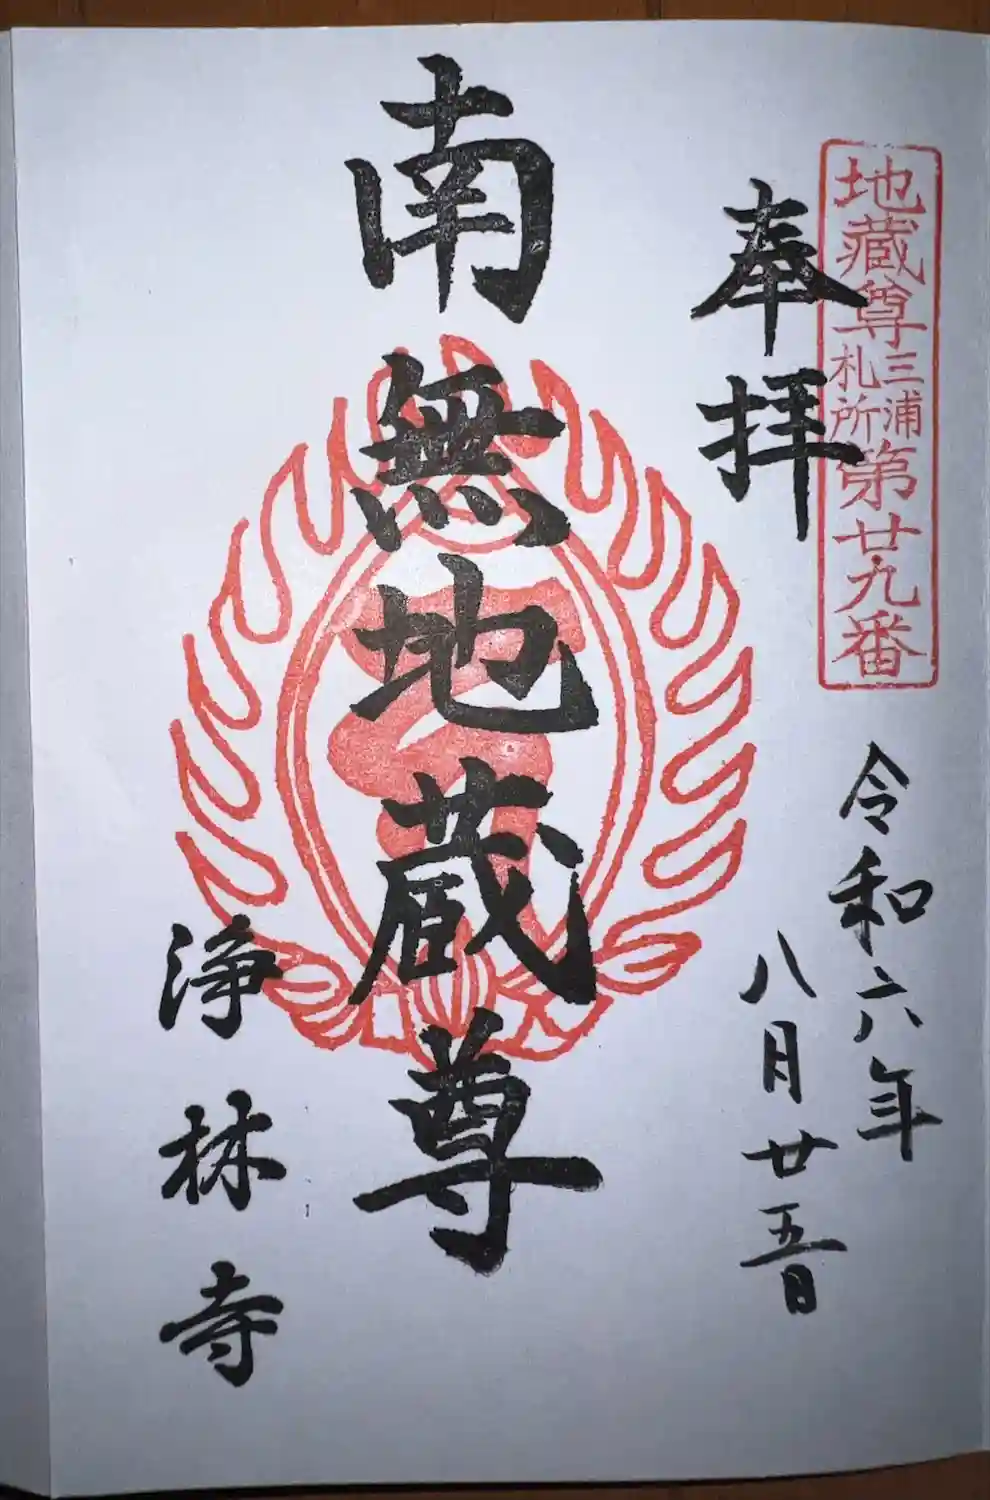 地蔵尊三浦札所第廿九番
奉拝
令和六年
八月廿五日
南無地蔵尊
浄林寺